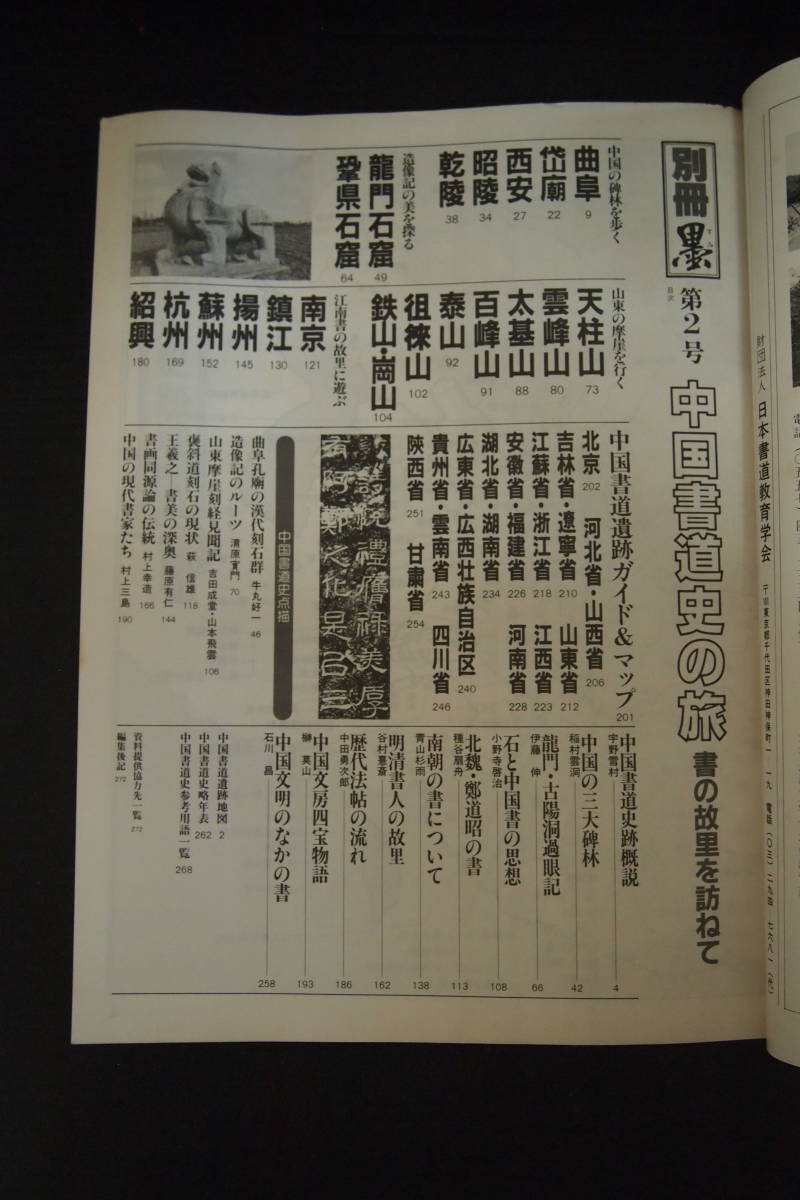 別冊
墨
すみ
第2号
目次
中国書道史の旅
書の故里を訪ねて
中国の碑林を歩く
曲阜 9
岱廟 22
西安 27
昭陵 34
乾陵 38
造像記の美を探る
龍門石窟 49
鞏県石窟 64
山東の摩崖を行く
天柱山 73
雲峰山 80
太基山 88
百峰山 91
泰山 92
徂徠山 102
鉄山・崗山 104
江南書の故里に遊ぶ
南京 121
鎮江 130
揚州 145
蘇州 152
杭州 169
紹興 180
中国書道遺跡ガイド&マップ 201
北京 202 河北省・山西省 206
吉林省・遼寧省 210 山東省 212
江蘇省・浙江省 218 江西省 223
安徽省・福建省 226 河南省 228
湖北省・湖南省 234
広東省・広西壮族自治区 240
貴州省・雲南省 243 四川省 246
陝西省 251 甘粛省 254
中国書道史点描
曲阜孔廟の漢代刻石群 牛丸好一 46
造像記のルーツ 清原實門 70
山東摩崖刻経見聞記 吉田成堂・山本飛雲 106
褒斜道刻石の現状 萩信雄 118
王羲之—書美の深奥 藤原有仁 144
書画同源論の伝統 村上幸造 166
中国の現代書家たち 村上三島 190
中国書道史跡概説 宇野雪村 4
中国の三大碑林 稲村雲洞 42
龍門・古陽洞過眼記 伊藤伸 66
石と中国書の思想 小野寺啓治 108
北魏・鄭道昭の書 種谷扇舟 113
南朝の書について 青山杉雨 138
明清書人の故里 谷村憙斎 162
歴代法帖の流れ 中田勇次郎 186
中国文房四宝物語 榊莫山 193
中国文明のなかの書 石川昌 258
中国書道遺跡地図 2
中国書道史略年表 262
中国書道史参考用語一覧 268
資料提供協力先一覧 272
編集後記 272
財団法人 日本書道教育学会
東京都千代田区神田神保町
電話(〇三)二九四